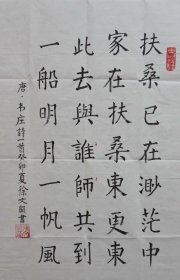 扶桑已在渺茫中
家在扶桑東更東
此去與誰師共到
一船明月一帆風
唐·韦庄詩一首癸卯夏徐文書